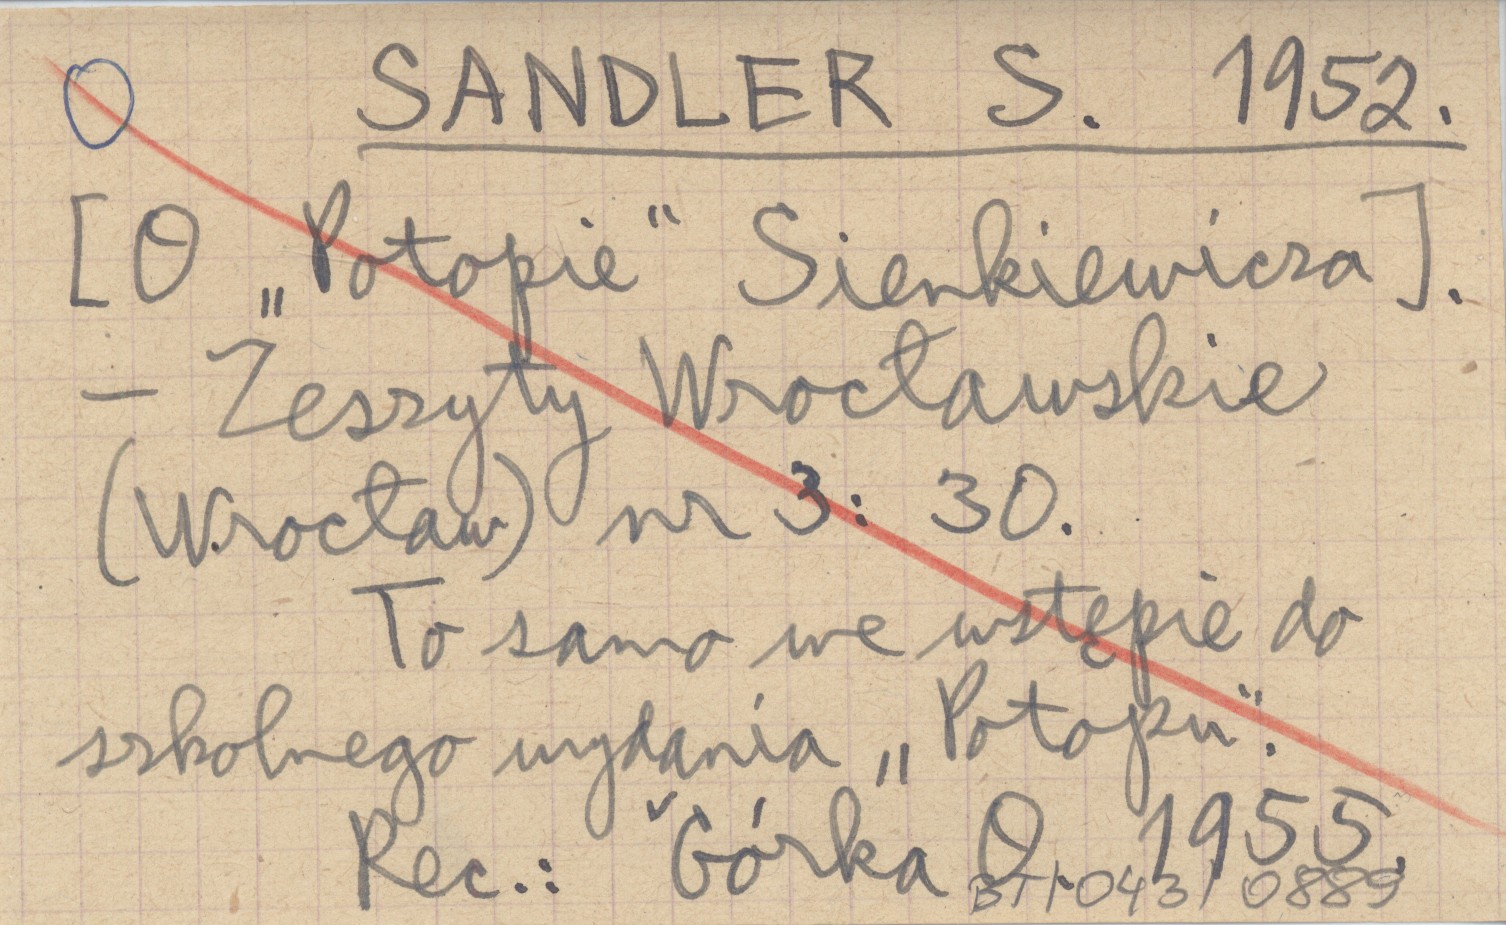 O SANDLER S. 1952.
[O „Potopie" Sienkiewicza].
– Zeszyty Wrocławskie
(Wrocław) nr 3: 30.
To samo we wstępie do
szkolnego wydania „Potopu".
Rec.: ˇGórka O. 1955.
BTI.043 / 0889